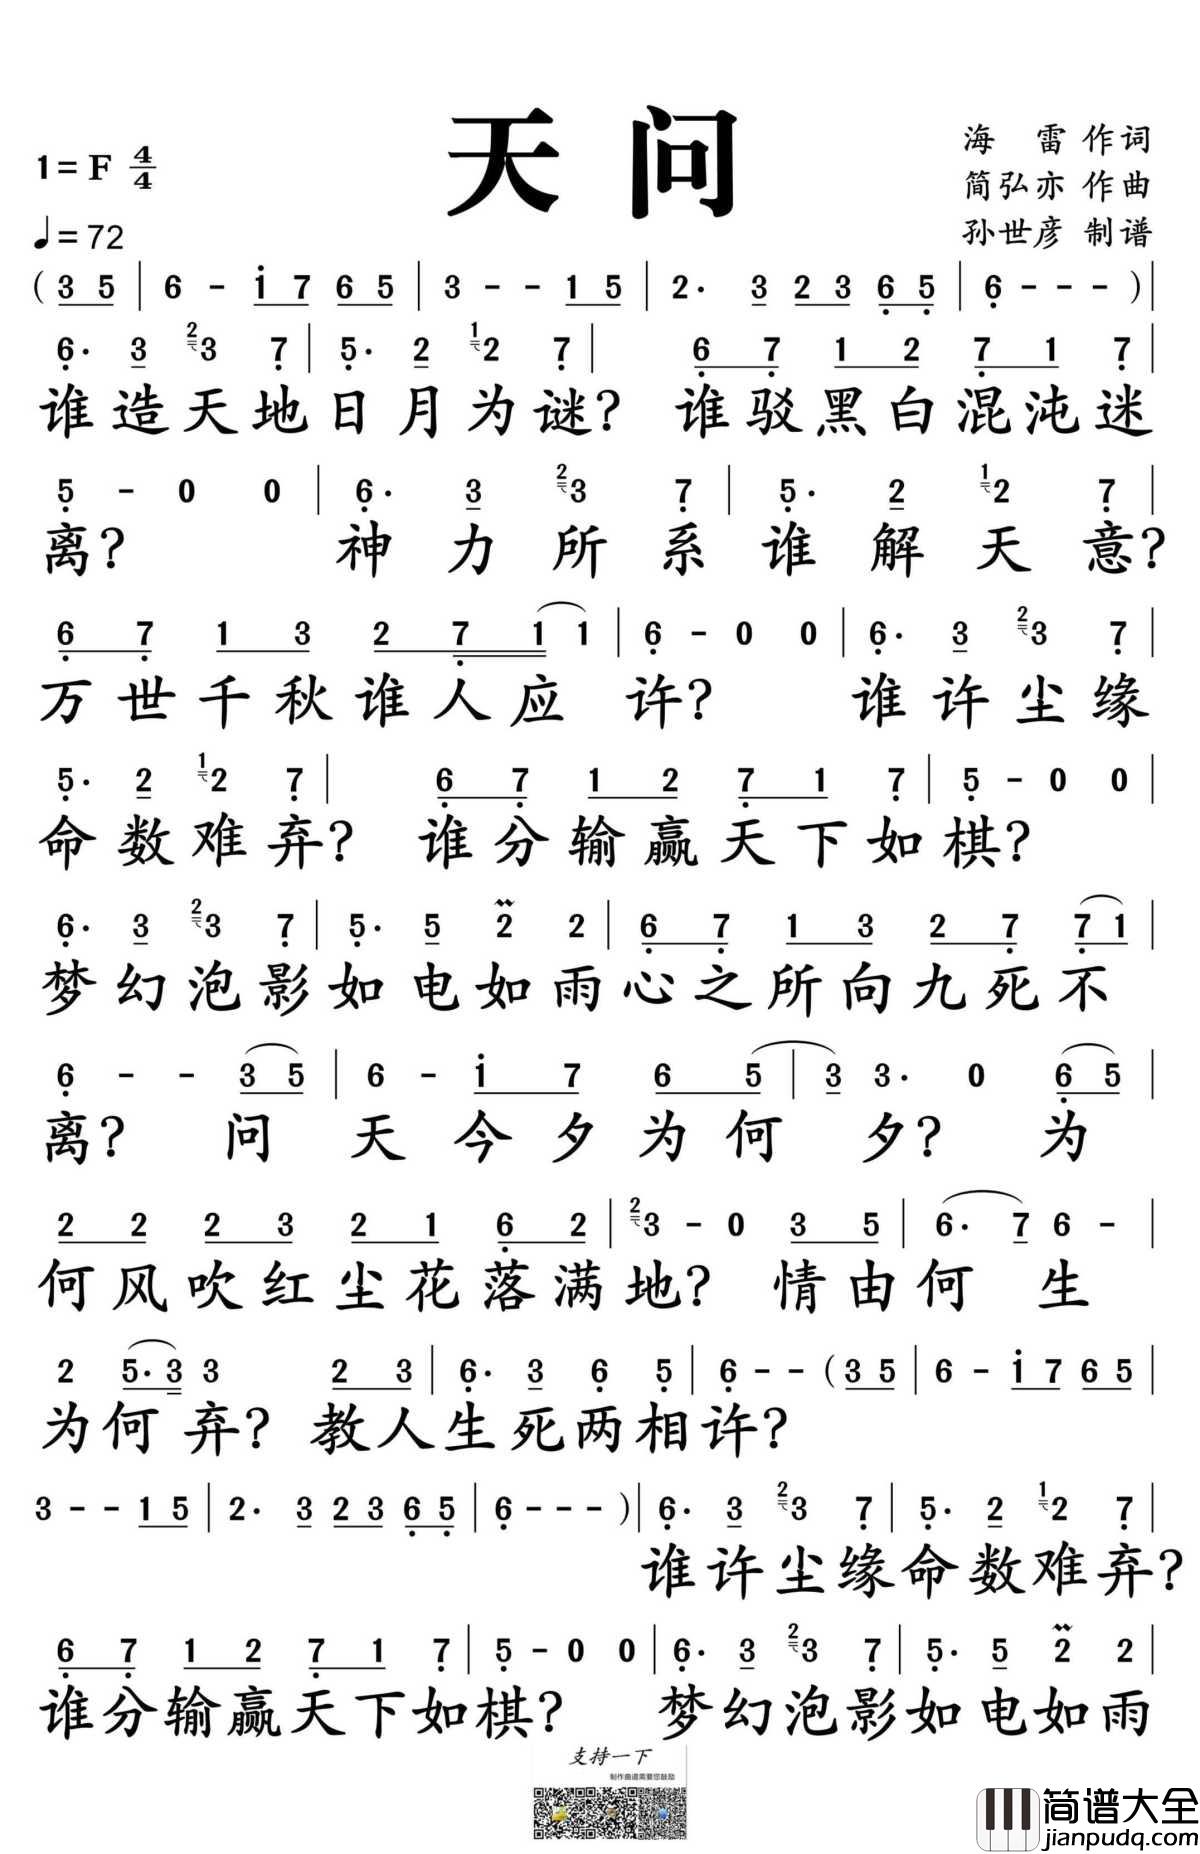 天问
1=F 4/4
♩=72
海 雷 作词
简弘亦 作曲
孙世彦 制谱
( 3 5 | 6 - i 7 6 5 | 3 - - 1 5 | 2· 3 2 3 6 5 | 6 - - - ) |
6· 3 2 3 7 | 5· 2 1 2 7 | 6 7 1 2 7 1 7 |
谁造天地日月为谜? 谁驳黑白混沌迷
5 - 0 0 | 6· 3 2 3 7 | 5· 2 1 2 7 |
离? 神力所系谁解天意?
6 7 1 3 2 7 1 1 | 6 - 0 0 | 6· 3 2 3 7 |
万世千秋谁人应 许? 谁许尘缘
5· 2 1 2 7 | 6 7 1 2 7 1 7 | 5 - 0 0 |
命数难弃? 谁分输赢天下如棋?
6· 3 2 3 7 | 5· 5 2 2 | 6 7 1 3 2 7 7 1 |
梦幻泡影如电如雨心之所向九死不
6 - - 3 5 | 6 - i 7 6 5 | 3 3· 0 6 5 |
离? 问 天今夕为何 夕? 为
2 2 2 3 2 1 6 2 | 2 3 - 0 3 5 | 6· 7 6 - |
何风吹红尘花落满地? 情由何 生
2 5· 3 3 2 3 | 6· 3 6 5 | 6 - - ( 3 5 | 6 - i 7 6 5 |
为何弃? 教人生死两相许?
3 - - 1 5 | 2· 3 2 3 6 5 | 6 - - - ) | 6· 3 2 3 7 | 5· 2 1 2 7 |
谁许尘缘命数难弃?
6 7 1 2 7 1 7 | 5 - 0 0 | 6· 3 2 3 7 | 5· 5 2 2 |
谁分输赢天下如棋? 梦幻泡影如电如雨
支持一下
制作曲谱需要您鼓励
简谱大全
jianpudq.com